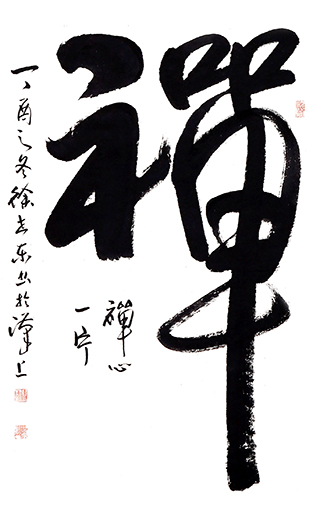 禪
禪心
一片
丁酉之冬徐志東书於漢上